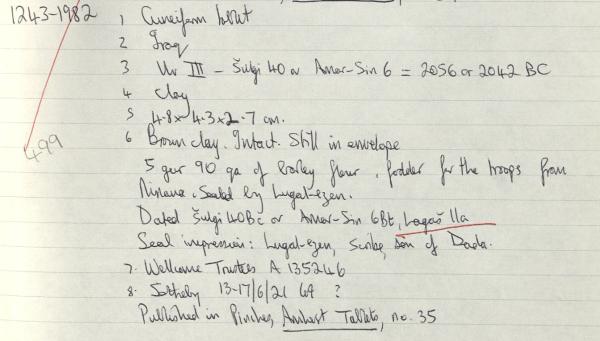 1243-1982
1 Cuneiform tablet
2 Iraq
3 Ur III - Šulgi 40 or Amar-Sin 6 = 2056 or 2042 BC
4 Clay
5 4.8 x 4.3 x 2.7 cm.
499
6 Brown clay. Intact. Still in envelope
5 gur 90 qa of barley flour, fodder for the troops from
. Sealed by Lugal-ezen.
Dated Šulgi 40 or Amar-Sin, Lagaš 11a
Seal impression: Lugal-ezen, scribe, son of Dada.
7. Wellcome Trustees A 135246
8. Sotheby 13-17/6/21 ?
Published in Pinches, Amherst Tablets, no. 35